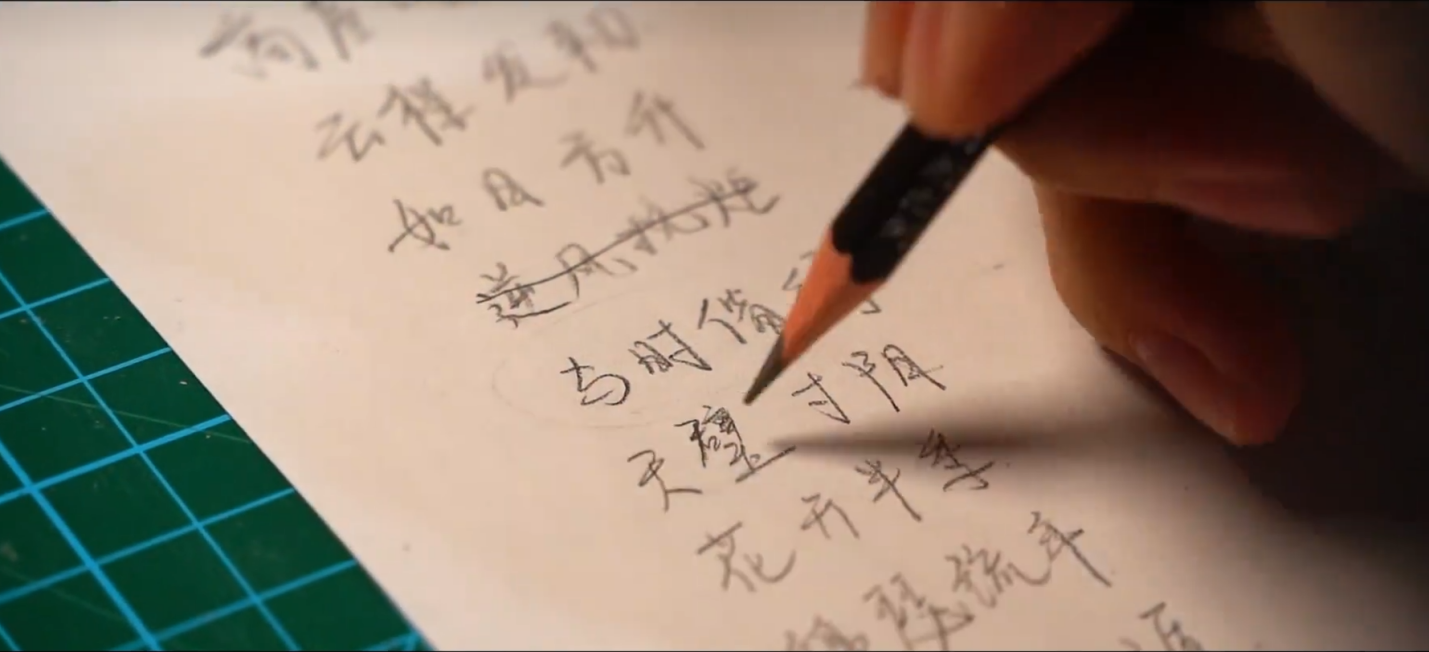 高度
云程发轫
如月方升
逆风执炬
与时偕行
天璧寸阴
花开半季
锦瑟流年